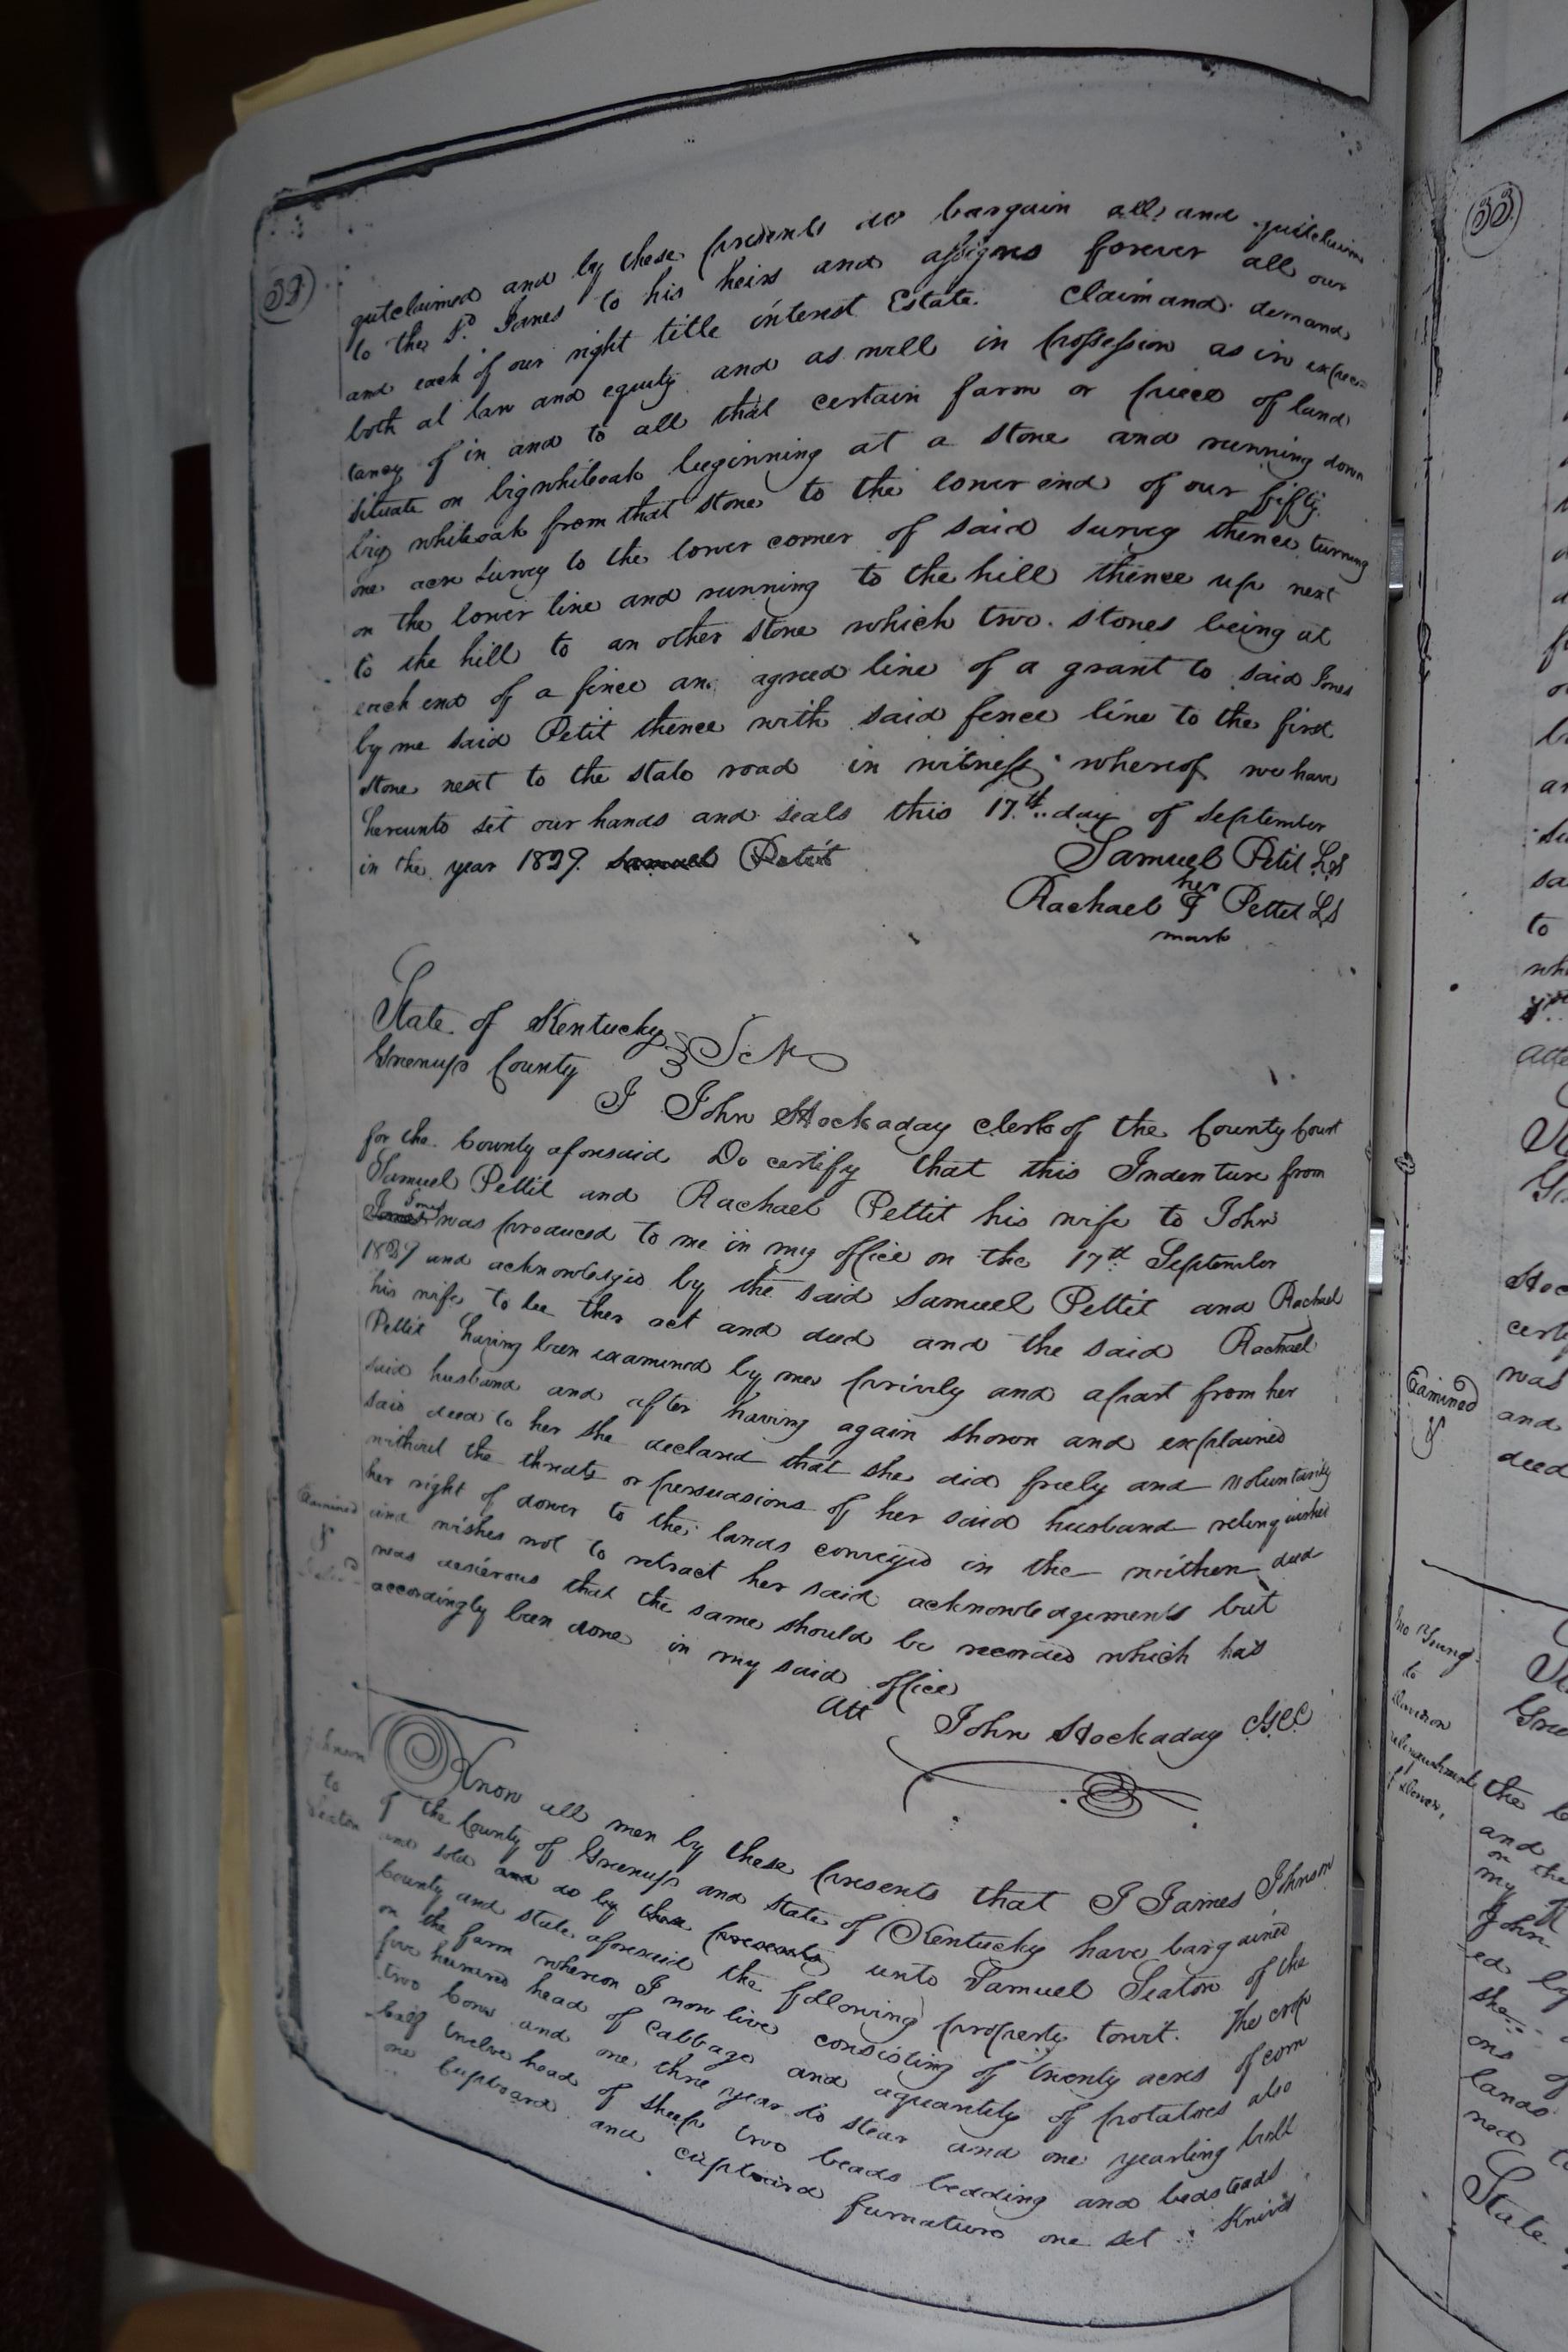 32
qutclaimed and by these presents do bargain all and quitclaim
to the sd. Jones to his heirs and assigns forever all our
and each of our right title interest Estate. Claim and demand
both at law and equity and as well in possession as in expec-
tancy of in and to all that certain farm or piece of land
situate on big whiteoak beginning at a stone and running down
big whiteoak from that stone to the lower end of our fifty
one acre survey to the lower corner of said survey thence turning
on the lower line and running to the hill thence up next
to the hill to an other stone which two stones being at
each end of a fince an agreed line of a grant to said Jones
by me said Petit thence with said fence line to the first
stone next to the state road in witness whereof we have
hereunto set our hands and seals this 17th day of September
in the year 1829. Samuel Petit
Samuel Petit LS
her
Rachael F Pettit LS
mark
State of Kentucky
Greenup County Sct
I John Hockaday clerk of the County Court
for the County aforesaid Do certify that this Indenture from
Samuel Pettit and Rachael Pettit his wife to John
Jones was produced to me in my office on the 17th September
1829 and acknowledgd by the said Samuel Pettit and Rachael
his wife to be ther act and deed and the said Rachael
Pettit having been examined by me privily and apart from her
said husband and after having again shown and explained
said deed to her she declared that she did freely and voluntarily
without the threats or persuasions of her said husband relinquished
her right of dower to the lands conveyed in the within deed
and wishes not to retract her said acknowledgements but
was desierous that the same should be recorded which has
accordingly been done in my said office
Examined
&
Att John Hockaday C.G.C.C
Johnson
to
Seaton
Know all men by these presents that I James Johnson
of the County of Greenup and state of Kentucky have bargained
and sold and do by these presents unto Samuel Seaton of the
County and state aforesaid the following property towit. The crop
on the farm whereon I now live consisting of twenty acres of corn
five hundred head of cabbage and aquantity of potatoes also
two Cows and one three year do stear and one yearling bull
calf twelve head of sheep two beads bedding and bedsteads
one Cupboard and cupboard furnature one set Knives
33
Examined
&
Jno Young
to
relinquishment
of dower,
to
and
deed
was
the
and
on the
my
John
ons
lands
State